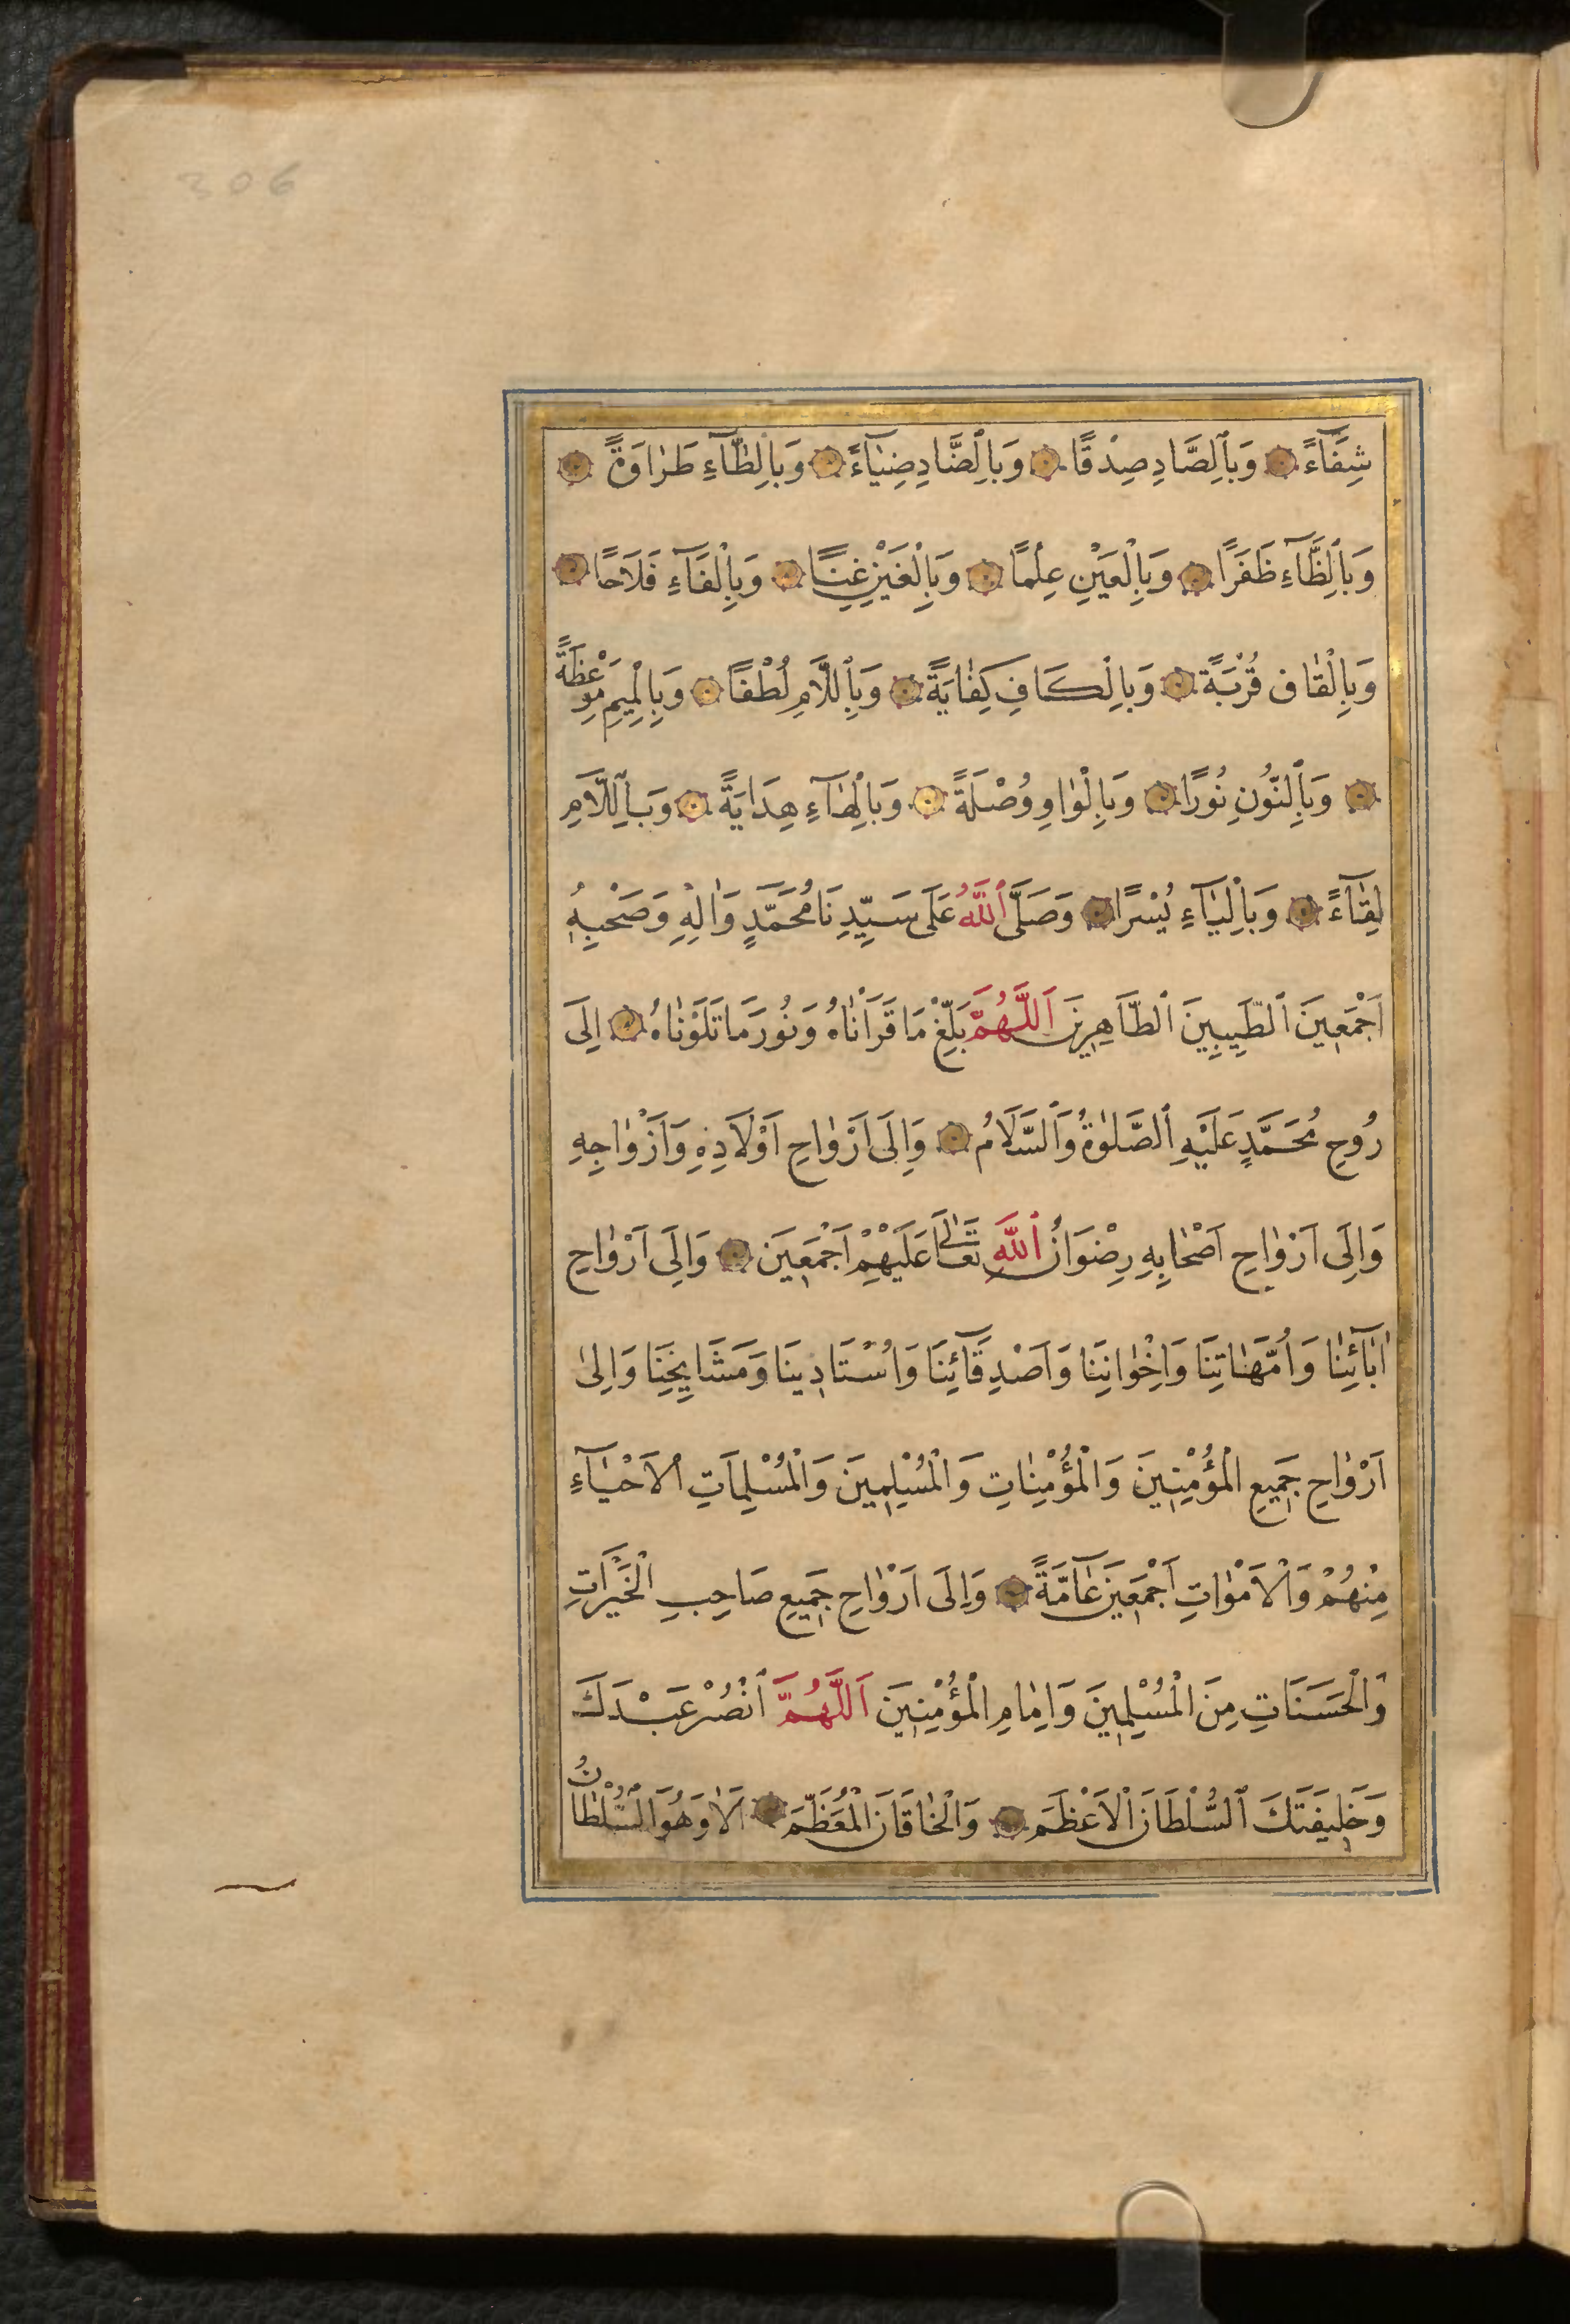 306
شِفَآءً وَبِٱلصَّادِ صِدْقًا وَبِالضَّادِ ضِيَآءً وَبِالطَّآءِ طَرَاوَةً
وَبِٱلظَّآءِ ظَفَرًا وَبِالْعَيْنِ عِلْمًا وَبِالْغَيْنِ غِنًا وَبِالْفَآءِ فَلَاحًا
وَبِالْقَافِ قُرْبَةً وَبِالْكَافِ كِفَايَةً وَبِاللَّامِ لُطْفًا وَبِالْمِيمِ مَوْعِظَةً
وَبِالنُّونِ نُورًا وَبِالْوَاوِ وُصْلَةً وَبِالْهَآءِ هِدَايَةً وَبِاللَّامِ
لِقَآءً وَبِالْيَآءِ يُسْرًا وَصَلَّى ٱللّٰهُ عَلَى سَيِّدِنَا مُحَمَّدٍ وَاٰلِهِ وَصَحْبِهِ
اَجْمَعِينَ ٱلطَّيِّبِينَ ٱلطَّاهِرِينَ اَللّٰهُمَّ بَلِّغْ مَا قَرَأْنَاهُ وَنُورَ مَا تَلَوْنَاهُ اِلَى
رُوحِ مُحَمَّدٍ عَلَيْهِ ٱلصَّلٰوةُ وَٱلسَّلَامُ وَاِلَى اَرْوَاحِ اَوْلَادِهِ وَاَزْوَاجِهِ
وَاِلَى اَرْوَاحِ اَصْحَابِهِ رِضْوَانُ ٱللّٰهِ تَعَالَى عَلَيْهِمْ اَجْمَعِينَ وَاِلَى اَرْوَاحِ
اٰبَآئِنَا وَاُمَّهَاتِنَا وَاِخْوَانِنَا وَاَصْدِقَآئِنَا وَاُسْتَادِينَا وَمَشَايِخِنَا وَاِلَى
اَرْوَاحِ جَمِيعِ الْمُؤْمِنِينَ وَالْمُؤْمِنَاتِ وَالْمُسْلِمِينَ وَالْمُسْلِمَاتِ الْاَحْيَآءِ
مِنْهُمْ وَالْاَمْوَاتِ اَجْمَعِينَ عَآمَّةً وَاِلَى اَرْوَاحِ جَمِيعِ صَاحِبِ الْخَيْرَاتِ
وَالْحَسَنَاتِ مِنَ الْمُسْلِمِينَ وَاِمَامِ الْمُؤْمِنِينَ اَللّٰهُمَّ ٱنْصُرْ عَبْدَكَ
وَخَلِيفَتَكَ ٱلسُّلْطَانَ الْاَعْظَمَ وَالْخَاقَانَ الْمُعَظَّمَ اَلَا وَهُوَ السُّلْطَانُ